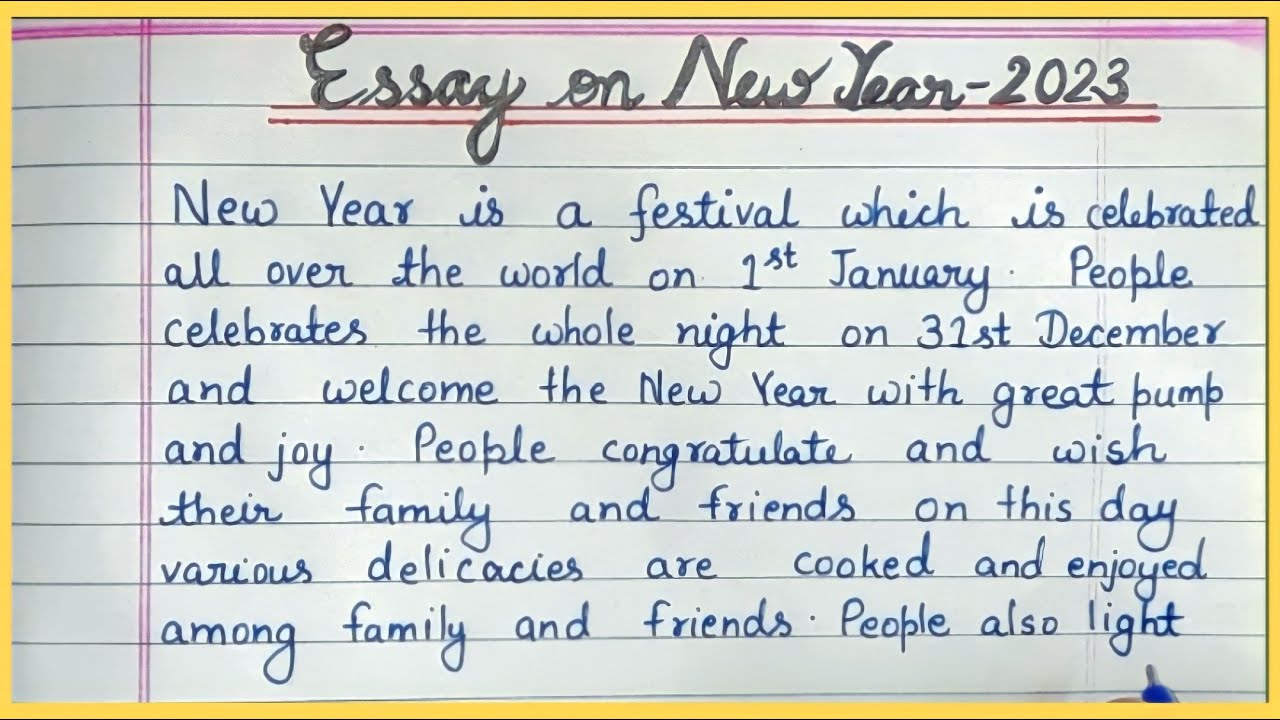 Essay on New Year-2023
New Year is a festival which is celebrated
all over the world on 1st January. People
celebrates the whole night on 31st December
and welcome the New Year with great pump
and joy. People congratulate and wish
their family and friends on this day
various delicacies are cooked and enjoyed
among family and friends. People also light